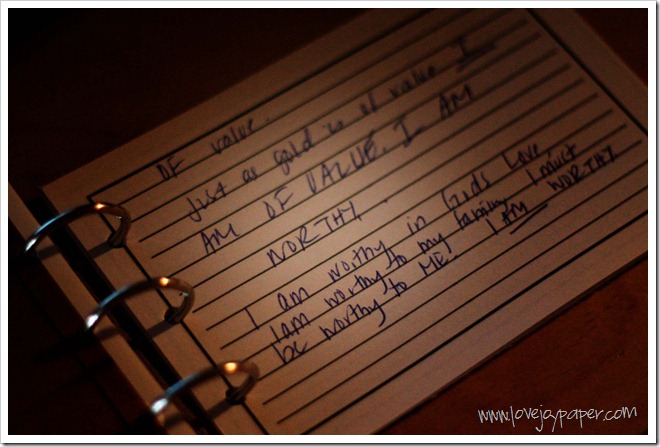 OF value.
Just as gold is of value I
AM OF VALUE. I AM
WORTHY.
I am worthy in God's love,
I am worthy to my family. I must
be worthy to ME! I AM WORTHY
www.lovejaypaper.com